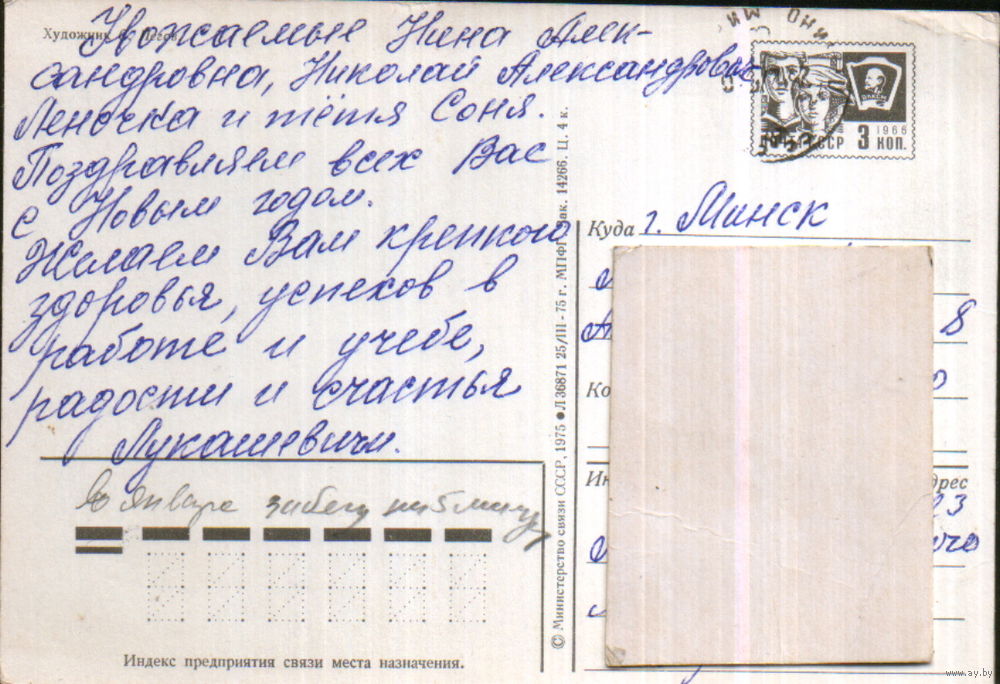 Художник
Уважаемые Нина Алек-
сандровна, Николай Александрович
Леночка и тётя Соня.
Поздравляем всех Вас
с Новым годом.
Желаем Вам крепкого
здоровья, успехов в
работе и учебе,
радости и счастья
Лукашевичи.
в январе забегу на 5 минут
Индекс предприятия связи места назначения.
© Министерство связи СССР, 1975 ● Л 36871 25/III-75 г. МПФГ Зак. 14266. Ц. 4 к.
ВЛКСМ
1966
СССР 3 КОП.
Куда г. Минск
8
Ко
Ин дрес
23
www.ay.by